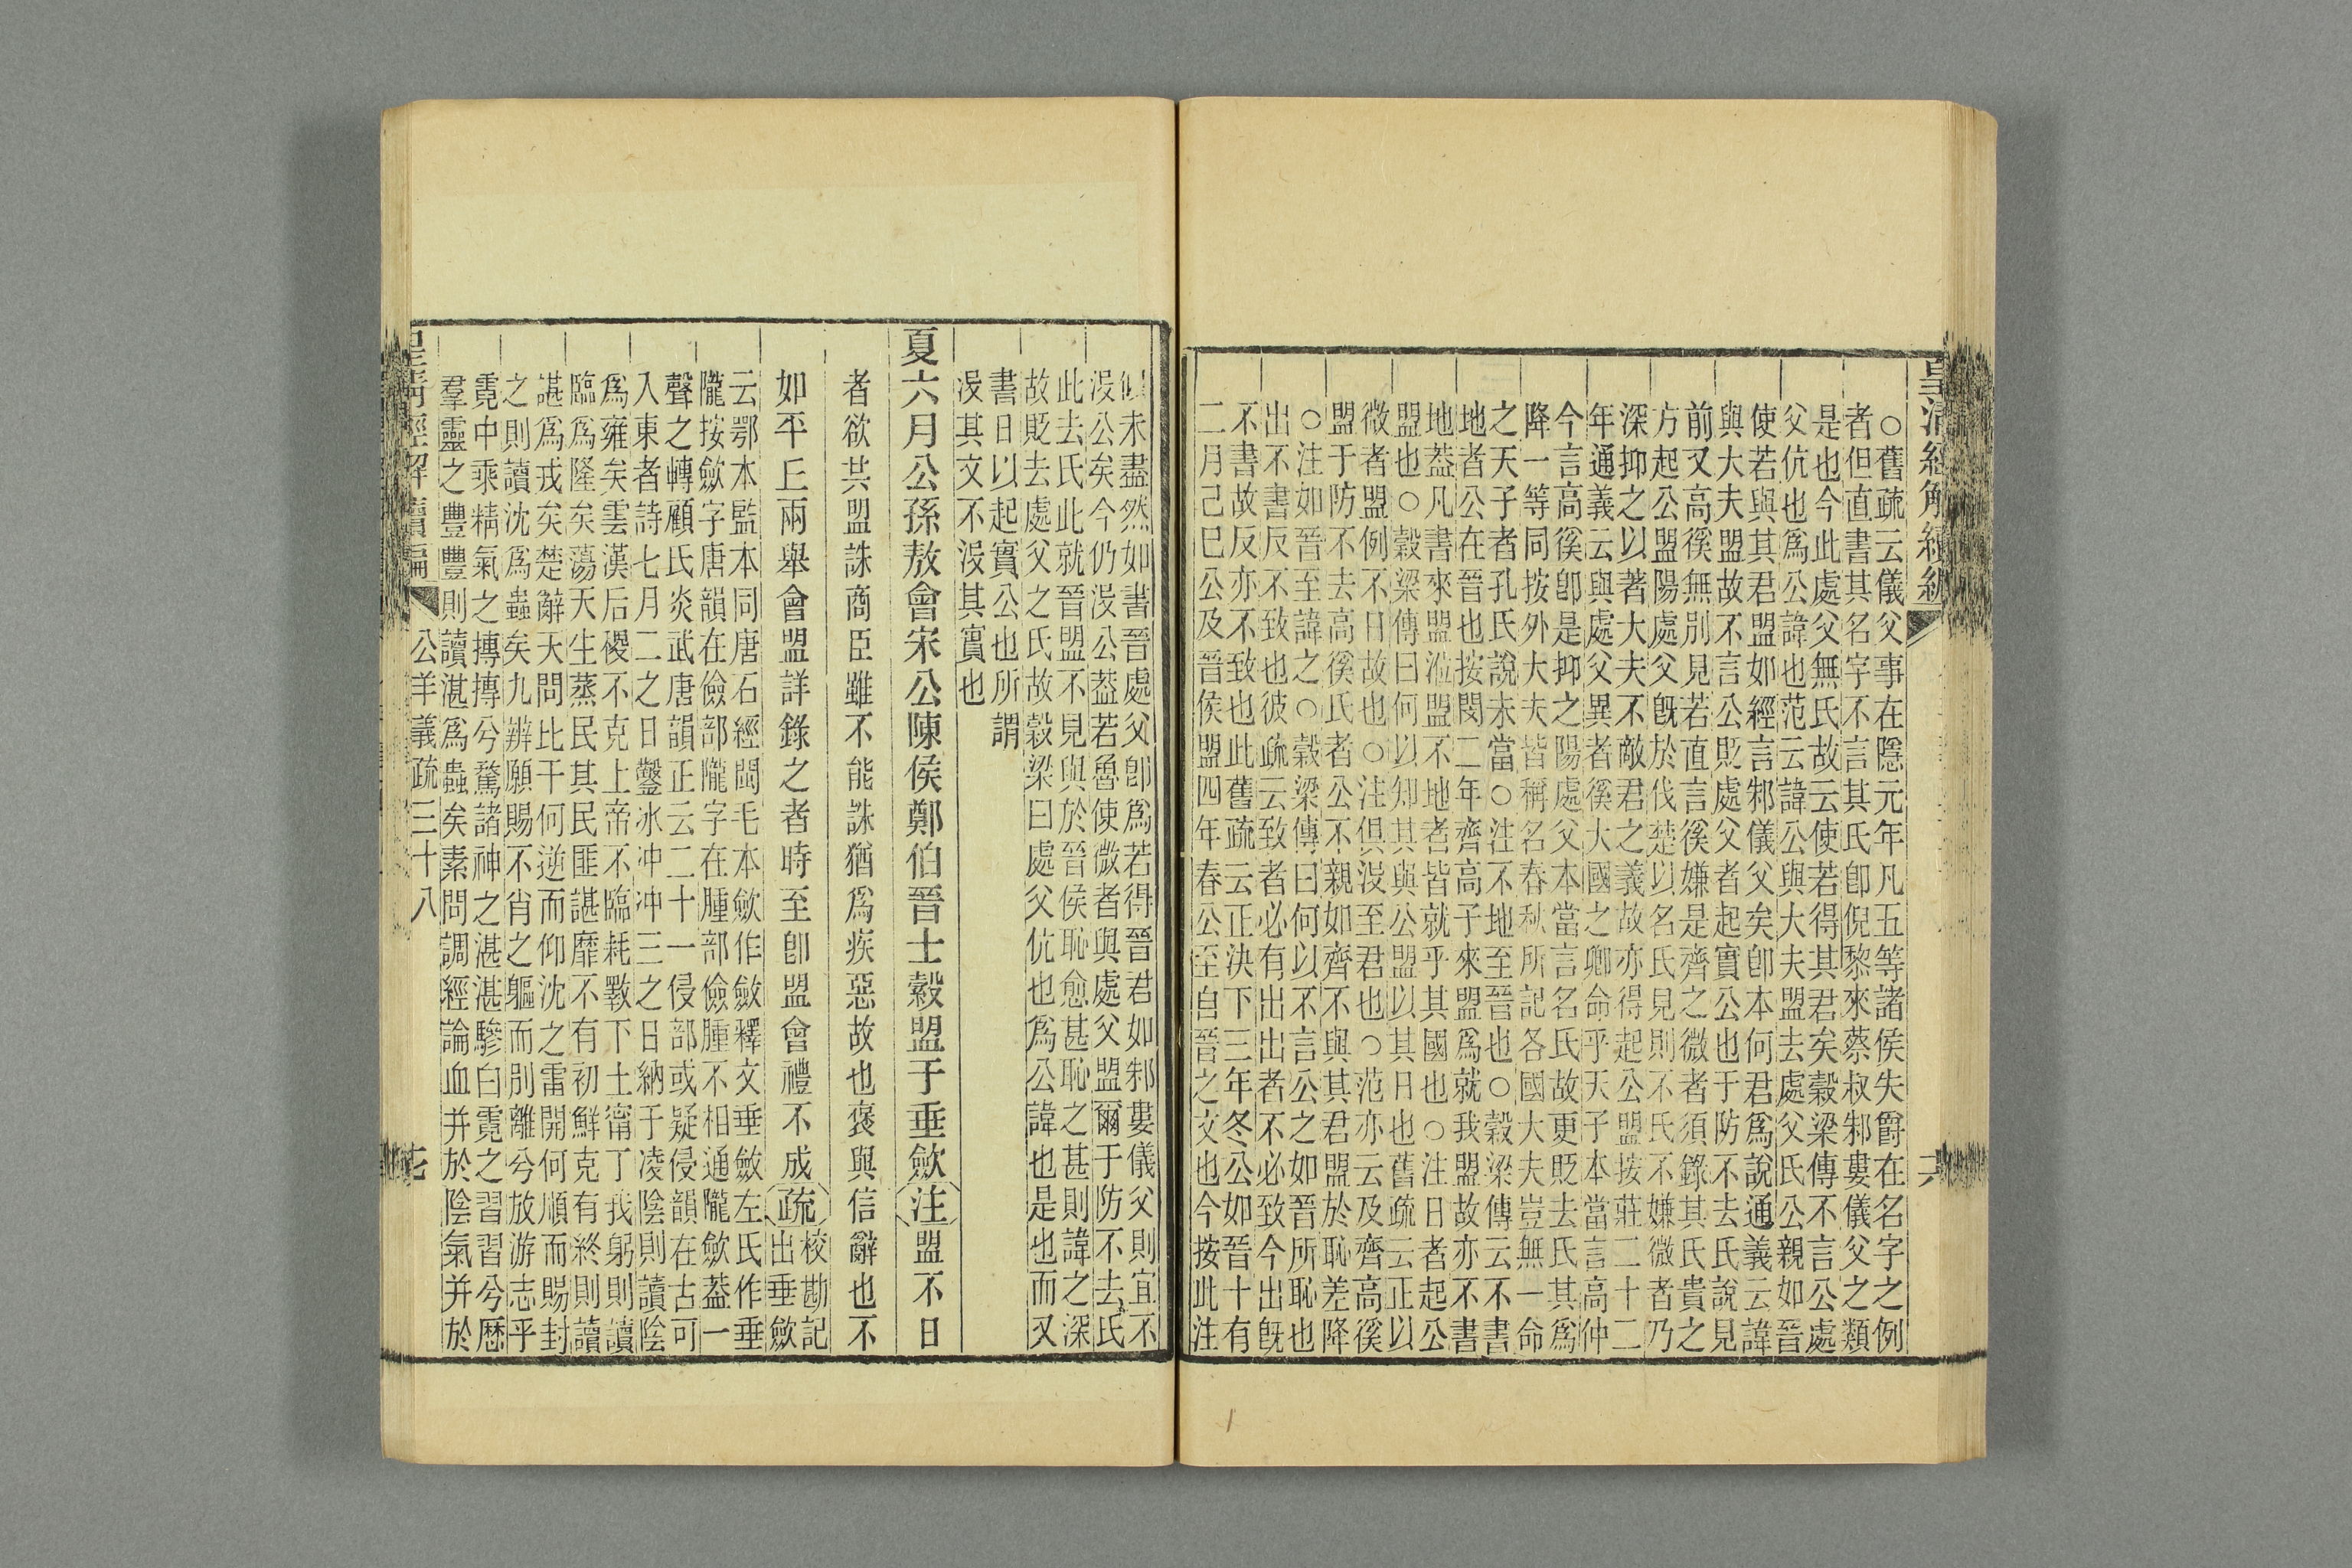 皇清經解續編
○舊疏云儀父事在隱元年凡五等諸侯失爵在名字之例
者但直書其名字不言其氏卽倪黎來蔡叔邾婁儀父之類
是也今此處父無氏故云使若得其君矣穀梁傳不言公處
父伉也爲公諱也范云諱公與大夫盟去處父氏公親如晉
使若與其君盟如經言邾儀父矣卽本何君爲說通義云諱
與大夫盟故不言公貶處父者起實公也于防不去氏說見
前又高徯無別見若直言徯嫌是齊之微者須錄其氏貴之
方起公盟陽處父旣於伐楚以名氏見則不氏不嫌微者乃
深抑之以著大夫不敵君之義故亦得起公盟按莊二十二
年通義云與處父異者徯大國之卿命乎天子本當言高仲
今言高徯卽是抑之陽處父本當言名氏故更貶去氏其爲
降一等同按外大夫皆稱名春秋所記各國大夫豈無一命
之天子者孔氏說未當○注不地至晉也○穀梁傳云不書
地者公在晉也按閔二年齊高子來盟爲就我盟故亦不書
地葢凡書來盟涖盟不地者皆就乎其國也○注日者起公
盟也○穀梁傳曰何以知其與公盟以其日也舊疏云正以
微者盟例不日故也○注俱沒至君也○范亦云及齊高徯
盟于防不去高徯氏者公不親如齊不與其君盟於恥差降
○注如晉至諱之○穀梁傳曰何以不言公之如晉所恥也
出不書反不致也彼疏云致者必有出出者不必致今出旣
不書故反亦不致也此舊疏云正決下三年冬公如晉十有
二月己巳公及晉侯盟四年春公至自晉之文也今按此注
似未盡然如書晉處父卽爲若得晉君如邾婁儀父則宜不
沒公矣今仍沒公葢若魯使微者與處父盟爾于防不去氏
此去氏此就晉盟不見與於晉侯恥愈甚恥之甚則諱之深
故貶去處父之氏故穀梁曰處父伉也爲公諱也是也而又
書日以起實公也所謂
沒其文不沒其實也
夏六月公孫敖會宋公陳侯鄭伯晉士縠盟于垂歛注盟不日
者欲共盟誅商臣雖不能誅猶爲疾惡故也褒與信辭也不
如平丘兩舉會盟詳錄之者時至卽盟會禮不成疏校勘記出垂歛
云鄂本監本同唐石經閩毛本歛作斂釋文垂斂左氏作垂
隴按歛字唐韻在儉部隴字在腫部儉腫不相通隴歛葢一
聲之轉顧氏炎武唐韻正云二十一侵部或疑侵韻在古可
入東者詩七月二之日鑿冰沖沖三之日納于凌陰則讀陰
爲雍矣雲漢后稷不克上帝不臨耗斁下土甯丁我躬則讀
臨爲隆矣蕩天生蒸民其民匪諶靡不有初鮮克有終則讀
諶爲戎矣楚辭天問比干何逆而仰沈之雷開何順而賜封
之則讀沈爲蟲矣九辨願賜不肖之軀而別離兮放游志乎
霓中乘精氣之摶摶兮騖諸神之湛湛驂白霓之習習兮歷
羣靈之豐豐則讀湛爲蟲矣素問調經論血并於陰氣并於
皇清經解續編 公羊義疏三十八